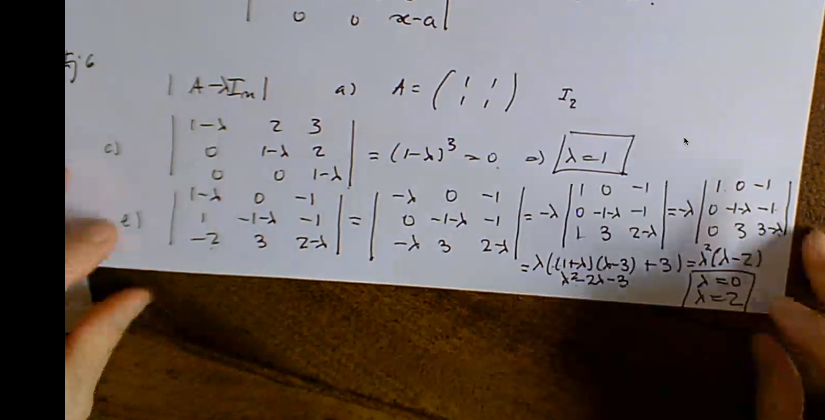 0 0 x-a|
| A-λI_m | a) A = ( 1 1 / 1 1 ) I_2
c) | 1-λ 2 3 / 0 1-λ 2 / 0 0 1-λ | = (1-λ)^3 = 0 ⇒ λ=1
e) | 1-λ 0 -1 / 1 -1-λ -1 / -2 3 2-λ | = | -λ 0 -1 / 0 -1-λ -1 / -λ 3 2-λ | = -λ | 1 0 -1 / 0 -1-λ -1 / 1 3 2-λ | = -λ | 1 0 -1 / 0 -1-λ -1 / 0 3 3-λ |
= λ((1+λ)(λ-3) + 3) = λ^2(λ-2)
λ^2-2λ-3
λ=0
λ=2